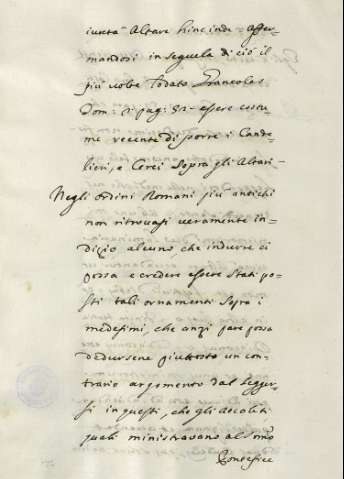 iuxta Altare hinc inde affer=
mandosi in seguela di ciò il
più volte lodato Francolas
Tom: 2: pag: 32 = essere costu=
me recente di porre i Cande=
lieri, e Cerei sopra gli Altari =
Negli Ordini Romani più antichi
non ritrovasi veramente in=
dizio alcuno, che indurne ci
possa a credere essere stati po=
sti tali ornamenti sopra i
medesimi, che anzi pare possa
dedursene piuttosto un con=
trario argomento dal legger=
si in questi, che gli Accoliti
quali ministravano al
Pontefice